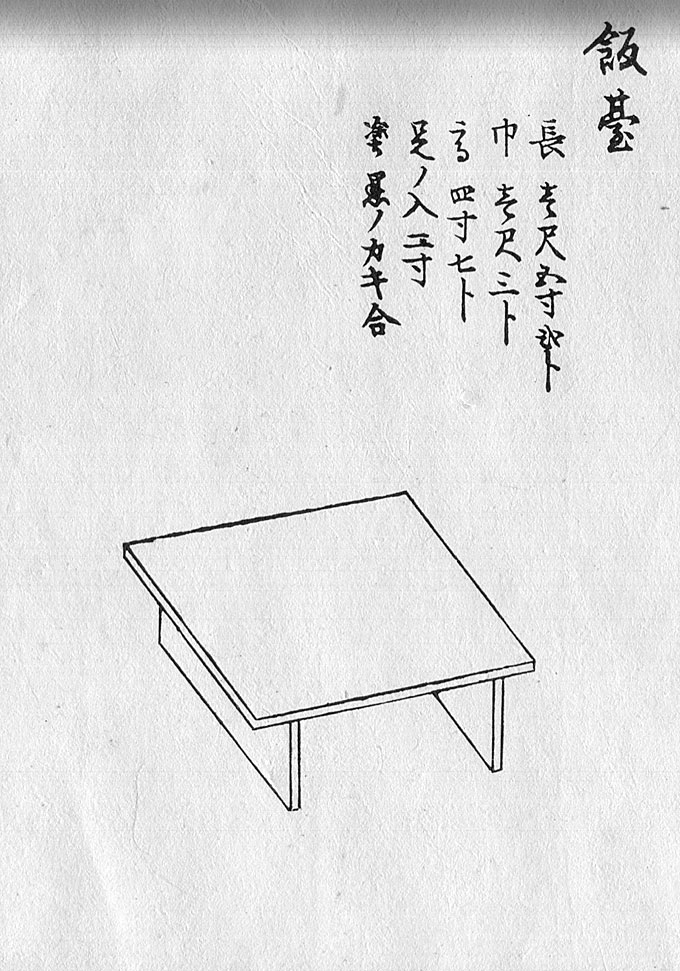 飯臺
長 壱尺五寸弐卜
巾 壱尺三卜
高 四寸七卜
足ノ入 二寸
塗 黒ノカキ合